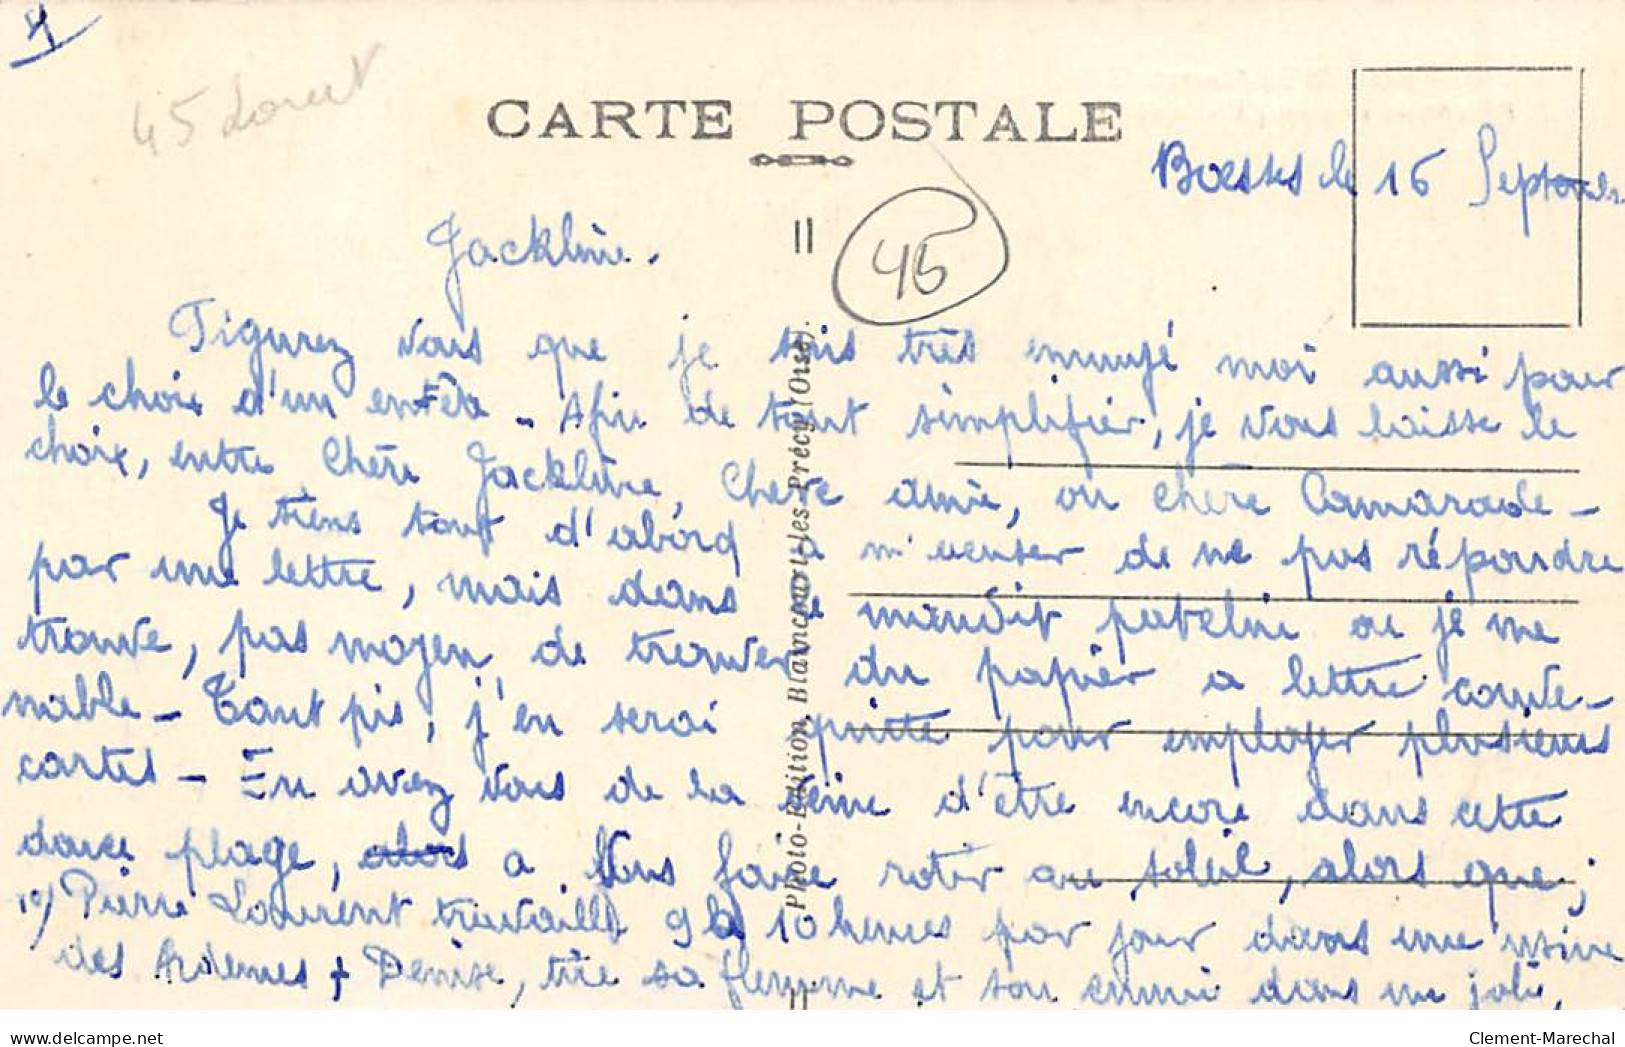 4
45 Loiret
CARTE POSTALE
Boesses le 16 Septembre
45
Jackline.
Figurez vous que je suis très ennuyé moi aussi pour
le choix d'un entête - Afin de tout simplifier, je vous laisse le
choix, entre Chère Jackline, Chère amie, ou chère Camarade -
Je tiens tout d'abord à m'excuser de ne pas répondre
par une lettre, mais dans ce maudit patelin ou je me
trouve, pas moyen de trouver du papier a lettre conve-
nable - Tant pis, j'en serai quitte pour employer plusieurs
cartes - En avez vous de la veine d'être encore dans cette
douce plage, a vous faire rotir au soleil, alors que;
1º) Pierre Laurent travaille 9 à 10 heures par jour dans une usine
des Ardennes, Denise, tire sa flemme et son ennui dans un joli,
Photo-Edition, Blaincourt-les-Précy (Oise).
www.delcampe.net
Clement-Marechal